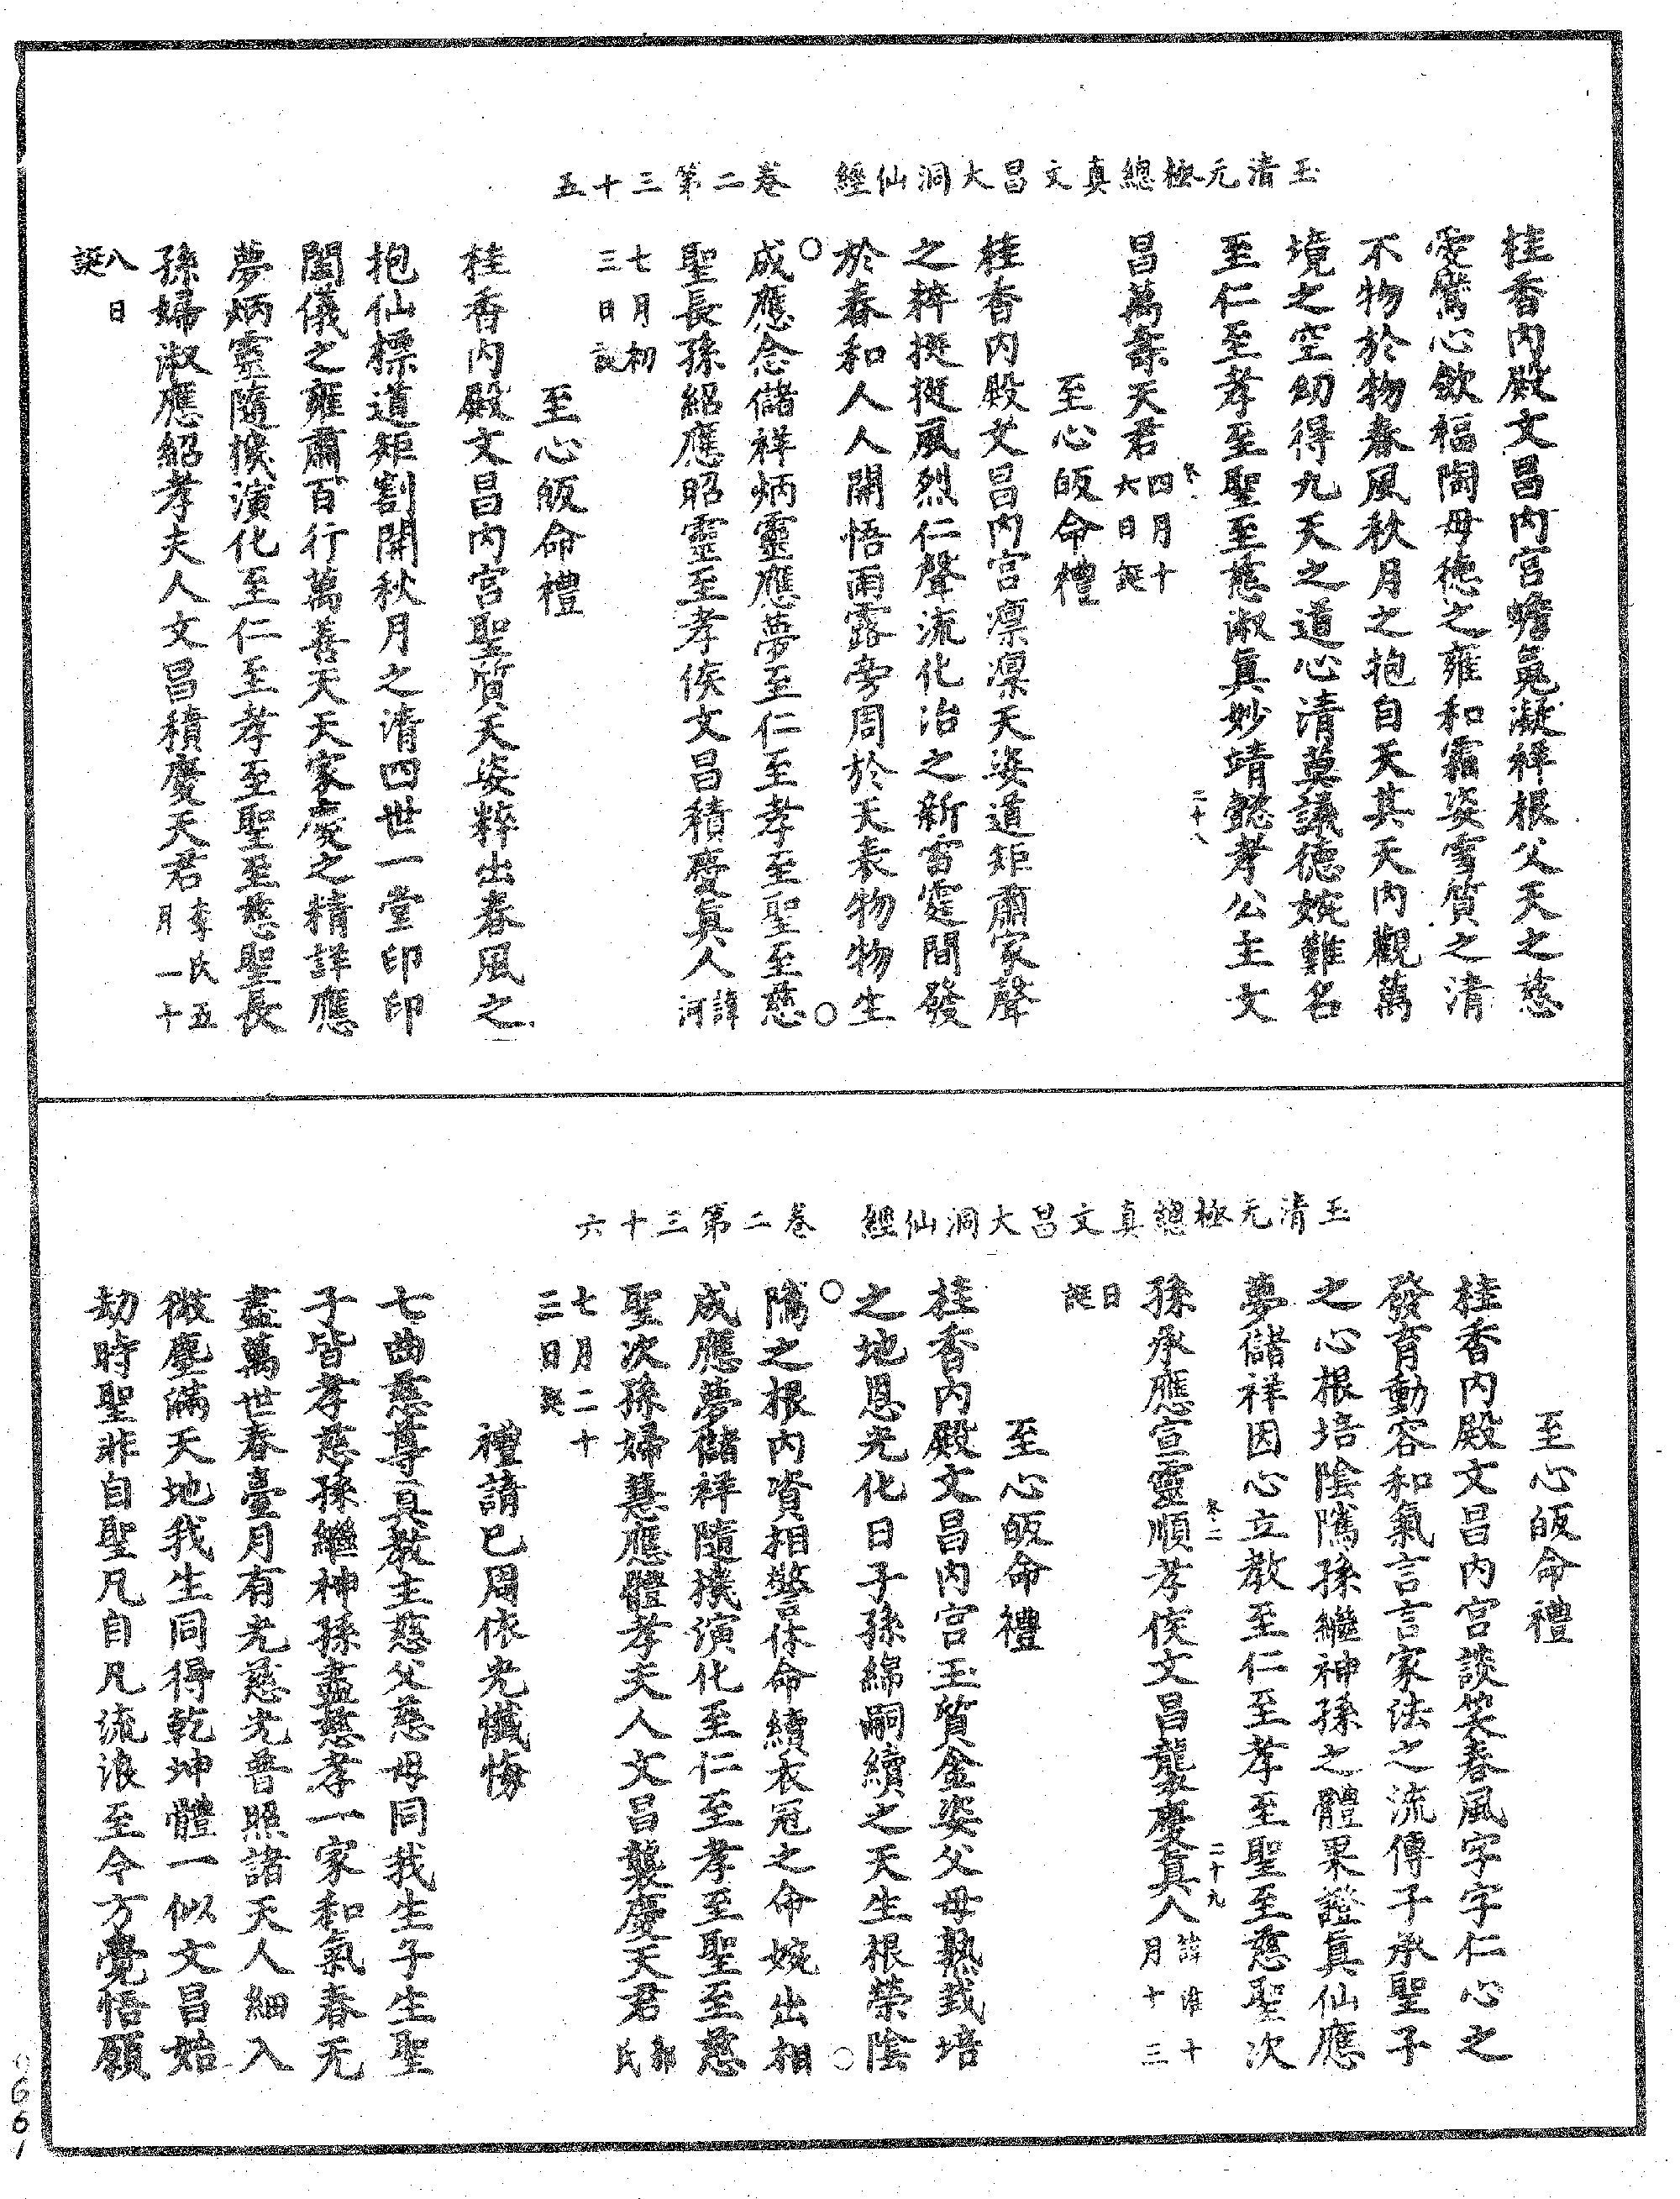 玉清元極總真文昌大洞仙經　卷二第三十五
桂香內殿文昌內宮蟾彘凝祥根父天之慈
愛鸞心飲福陶母德之雍和霜姿雪質之清
不物於物春風秋月之抱自天其天內觀萬
境之空幼得九天之道心清莫議德婉難名
至仁至孝至聖至慈淑真妙靖懿孝公主文
卷二　二十八
昌萬壽天君四月十六日誕
至心皈命禮
桂香內殿文昌內宮凛凛天姿道矩肅家聲
之粹挺挺風烈仁聲流化治之新雷霆間發
於春和人人開悟雨露旁周於天表物物生
成應念儲祥炳靈應夢至仁至孝至聖至慈
聖長孫紹應昭靈至孝侯文昌積慶真人諱河
七月初三日誕
至心皈命禮
桂香內殿文昌內宮聖質天姿粹出春風之
抱仙標道矩割開秋月之清四世一堂印印
閨儀之雍肅百行萬善天天家慶之精詳應
夢炳靈隨機演化至仁至孝至聖至慈聖長
孫婦淑應紹孝夫人文昌積慶天君李氏五月一十
八日誕
玉清元極總真文昌大洞仙經　卷二第三十六
至心皈命禮
桂香內殿文昌內宮談笑春風字字仁心之
發育動容和氣言言家法之流傳子承聖子
之心根培陰隲孫繼神孫之體果證真仙應
夢儲祥因心立教至仁至孝至聖至慈聖次
卷二　二十九
孫承應宣靈順孝侯文昌襲慶真人諱淮十月十三
日誕
至心皈命禮
桂香內殿文昌內宮玉質金姿父母熱栽培
之地恩光化日子孫綿嗣續之天生根榮陰
隲之根內資相警休命續衣冠之命婉出相
成應夢儲祥隨機演化至仁至孝至聖至慈
聖次孫婦慧應體孝夫人文昌襲慶天君郭氏
七月二十三日誕
禮請已周依光懺悔
七曲慈尊真教主慈父慈母同我生子生聖
子皆孝慈孫繼神孫盡慈孝一家和氣春无
盡萬世春臺月有光慈光普照諸天人細入
微塵滿天地我生同得乾坤體一似文昌始
劫時聖非自聖凡自凡流浪至今方覺悟願